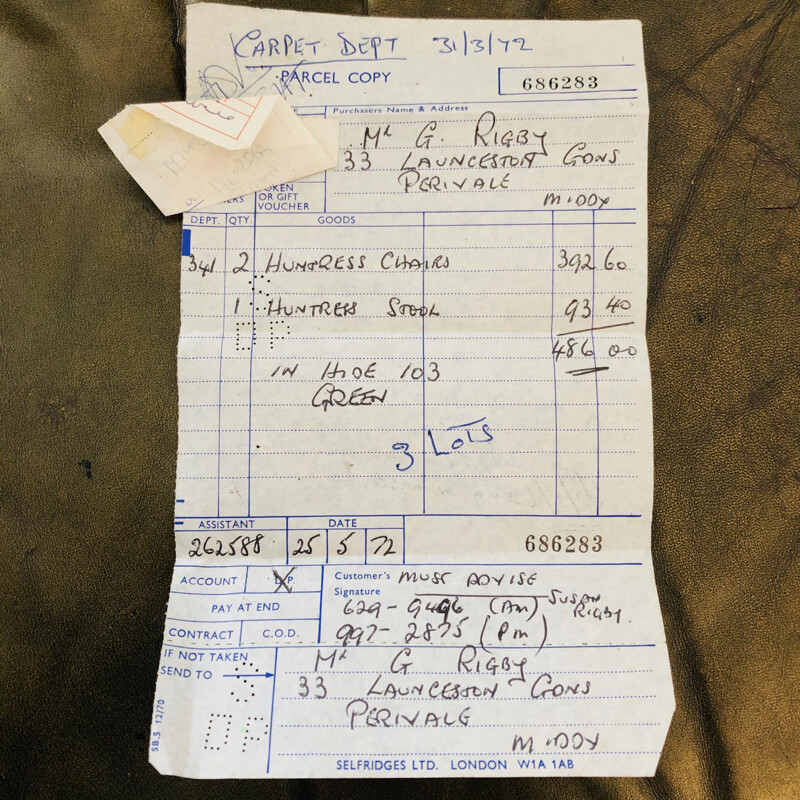 CARPET DEPT 31/3/72
PARCEL COPY
686283
Purchasers Name & Address
Mr G. RIGBY
33 LAUNCESTON GDNS
PERIVALE
MIDDX
OR GIFT
VOUCHER
DEPT. QTY. GOODS
341 2 HUNTRESS CHAIRS 392 60
1 HUNTRESS STOOL 93 40
486 00
IN HIDE 103
GREEN
3 LOTS
ASSISTANT DATE
262588 25 5 72 686283
ACCOUNT D.P. Customer's MUST ADVISE
Signature
PAY AT END 629-9496 (Am) SUSAN RIGBY.
CONTRACT C.O.D. 997-2875 (Pm)
IF NOT TAKEN
SEND TO
Mr G RIGBY
33 LAUNCESTON GDNS
PERIVALE
MIDDX
SB.5 12/70
SELFRIDGES LTD. LONDON W1A 1AB